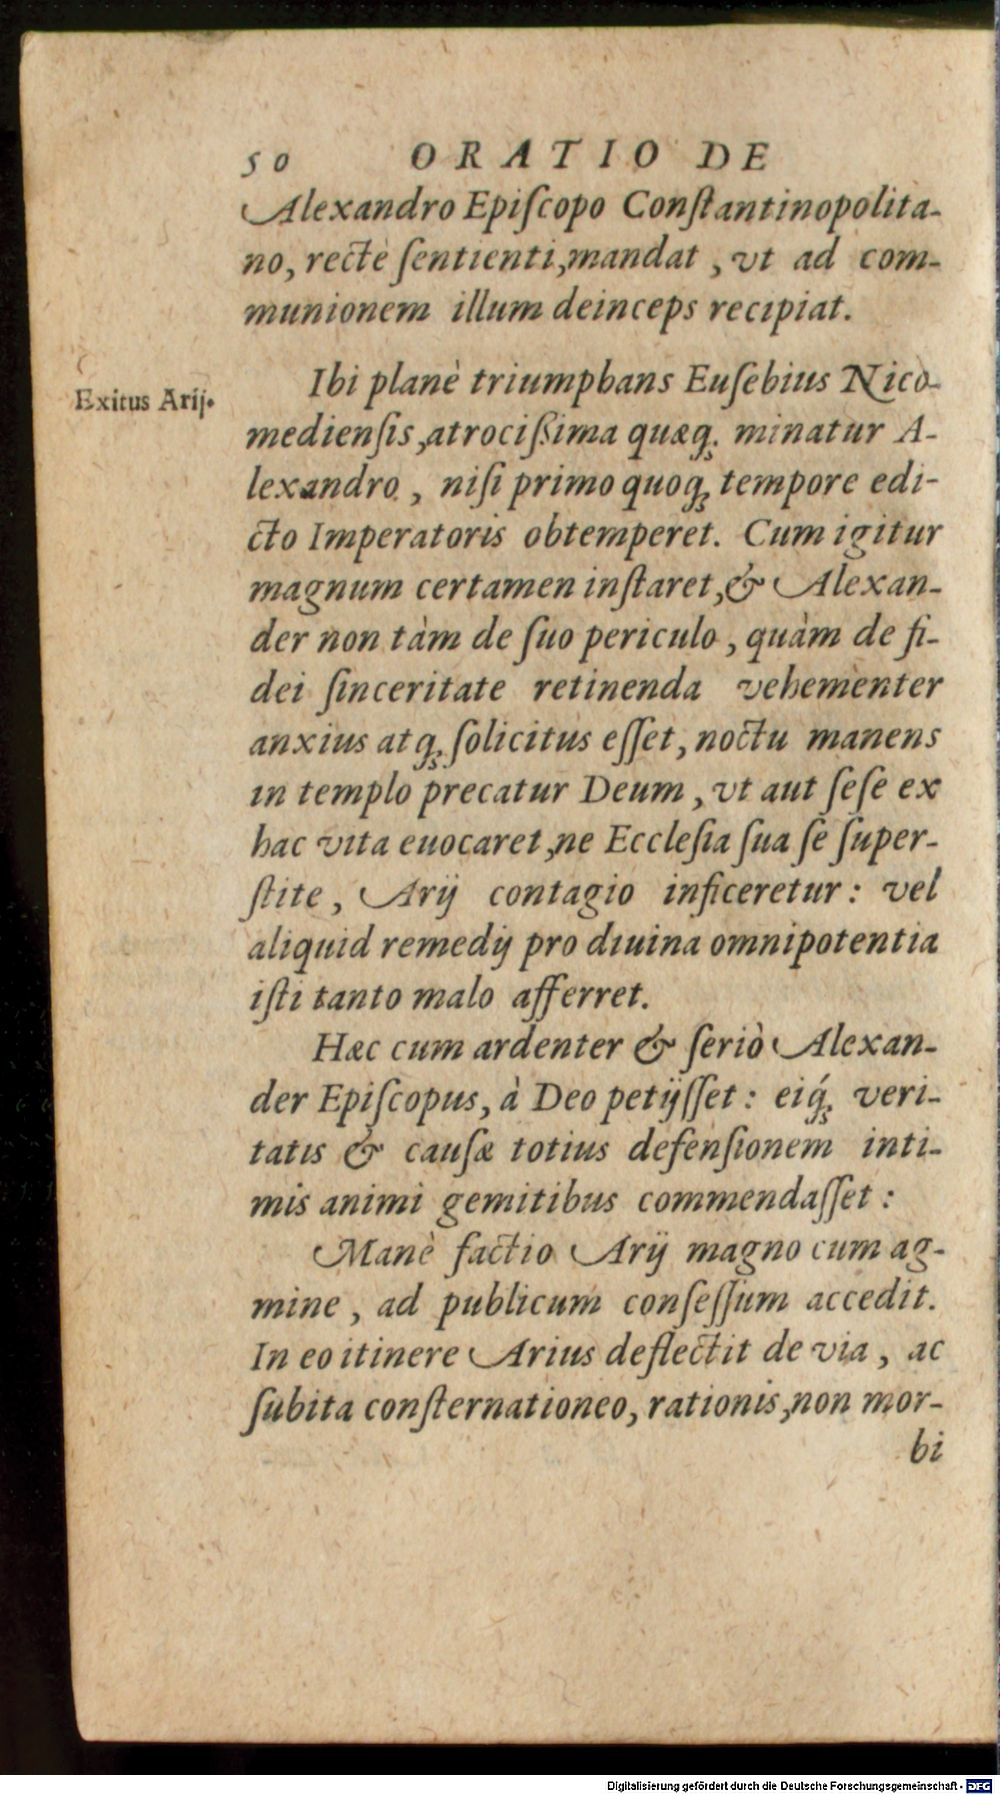 50 ORATIO DE
Alexandro Epiſcopo Conſtantinopolita-
no, rectè ſentienti, mandat, vt ad com-
munionem illum deinceps recipiat.
Exitus Arij.
Ibi planè triumphans Euſebius Nico-
medienſis, atrocißima quæq́; minatur A-
lexandro, niſi primo quoq; tempore edi-
cto Imperatoris obtemperet. Cum igitur
magnum certamen inſtaret, & Alexan-
der non tàm de ſuo periculo, quàm de fi-
dei ſinceritate retinenda vehementer
anxius atq; ſolicitus eſſet, noctu manens
in templo precatur Deum, vt aut ſeſe ex
hac vita euocaret, ne Eccleſia ſua ſe ſuper-
ſtite, Arij contagio inficeretur: vel
aliquid remedij pro diuina omnipotentia
iſti tanto malo afferret.
Hæc cum ardenter & ſeriò Alexan-
der Epiſcopus, à Deo petijſſet: eiq́; veri-
tatis & cauſæ totius defenſionem inti-
mis animi gemitibus commendaſſet:
Manè factio Arij magno cum ag-
mine, ad publicum conſeſſum accedit.
In eo itinere Arius deflectit de via, ac
ſubita conſternatione o, rationis, non mor-
bi
Digitalisierung gefördert durch die Deutsche Forschungsgemeinschaft - DFG